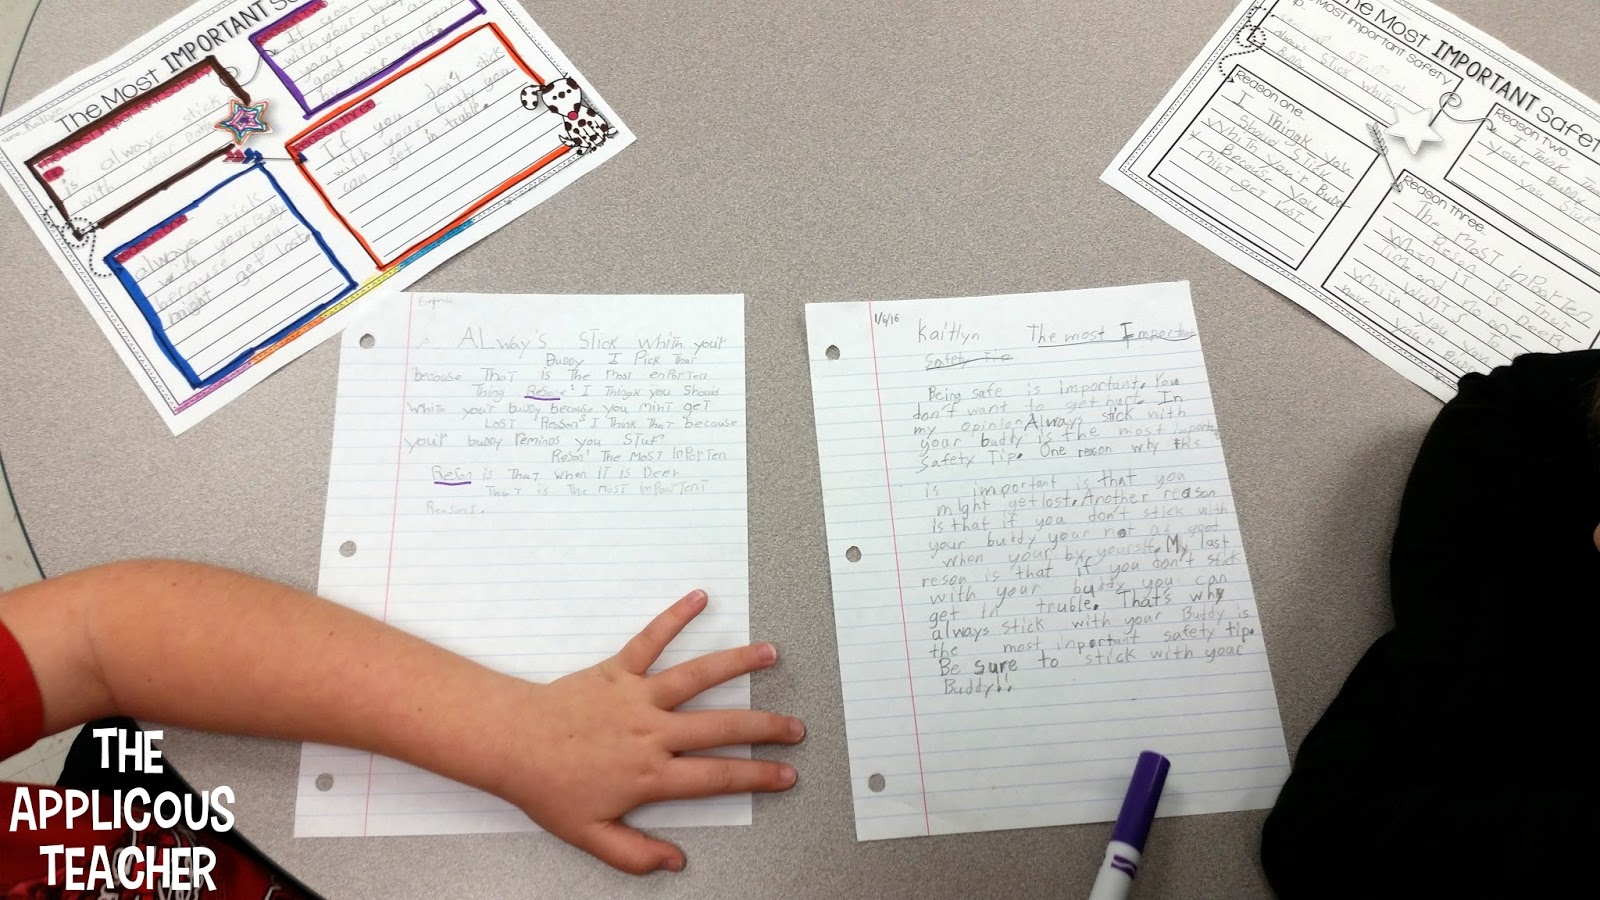 The Most IMPORTANT Sa
The Most Important Safety
Tip
is always stick
with
If you
with your
your not as
good when
by your self.
Reason Three
If you don't stick
with your buddy you
can get in truble.
Reason one
always stick
with your Buddy
because you
might get lost.
The Most IMPORTANT Safet
The Most Important Safety
Tip
always stick whith
Reason one
I Thingk you
Should Stick
Whith You'r Budd
Because You
Mint get
Lost
Reason Two
You'r Buddy
You Stuf
Reason Three
The Most inPorTen
Reson is ThaT
When IT is Deer
Time and no one
WanTs To
Whith You
You'r Budd
ALway's STick whith your
Buddy I Pick ThaT
because ThaT is The MosT enPorTen
Thing Resone¹ I Thingk you Should
Whith your buddy because you minT geT
LosT Reson² I Think ThaT because
your buddy reminds you STuf
Reson³ The MosT InPorTen
Reson is ThaT when IT is Deer
ThaT is The MosT ImPorTenT
Reasons.
1/6/16 Kaitlyn The most Important
Safety Tip
Being safe is important. You
don't want to get hurt. In
my opinion Always stick with
your buddy is the most important
Safety Tip. One reson why this
is important is that you
might get lost. Another reason
is that if you don't stick with
your buddy your not as good
when your by yourself. My last
reson is that if you don't stick
with your buddy you can
get in truble. That's why
always stick with your Buddy is
the most inportant safety tip.
Be sure to stick with your
Buddy!!
THE
APPLICOUS
TEACHER